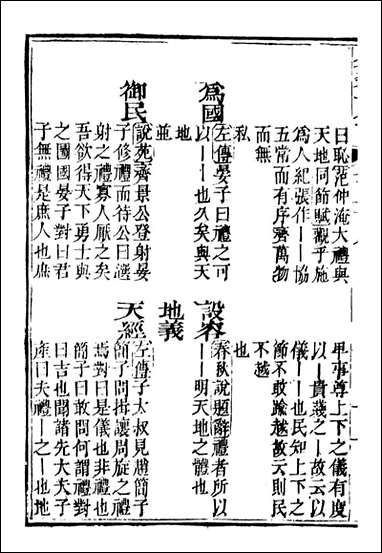 曰恥范仲淹大禮與
天地同節賦觀乎施
為人紀張作丨丨協
五常而有序濟萬物
而無
私
為國
左傳晏子曰禮之可
以丨丨也久矣與天
地
並
御民
說苑齊景公登射晏
子修禮而待公曰選
射之禮寡人厭之矣
吾欲得天下勇士與
之圖國晏子對曰君
子無禮是庶人也庶
卑事尊上下之儀有度
以丨貴賤之丨故云以
儀丨丨也民知上下之
節不敢踰越故云則民
不越
也
設容
春秋說題辭禮者所以
丨丨明天地之體也
天經
地義
左傳子太叔見趙簡子
簡子問揖讓周旋之禮
焉對曰是儀也非禮也
簡子曰敢問何謂禮對
曰吉也聞諸先大夫子
產曰夫禮丨之丨也地